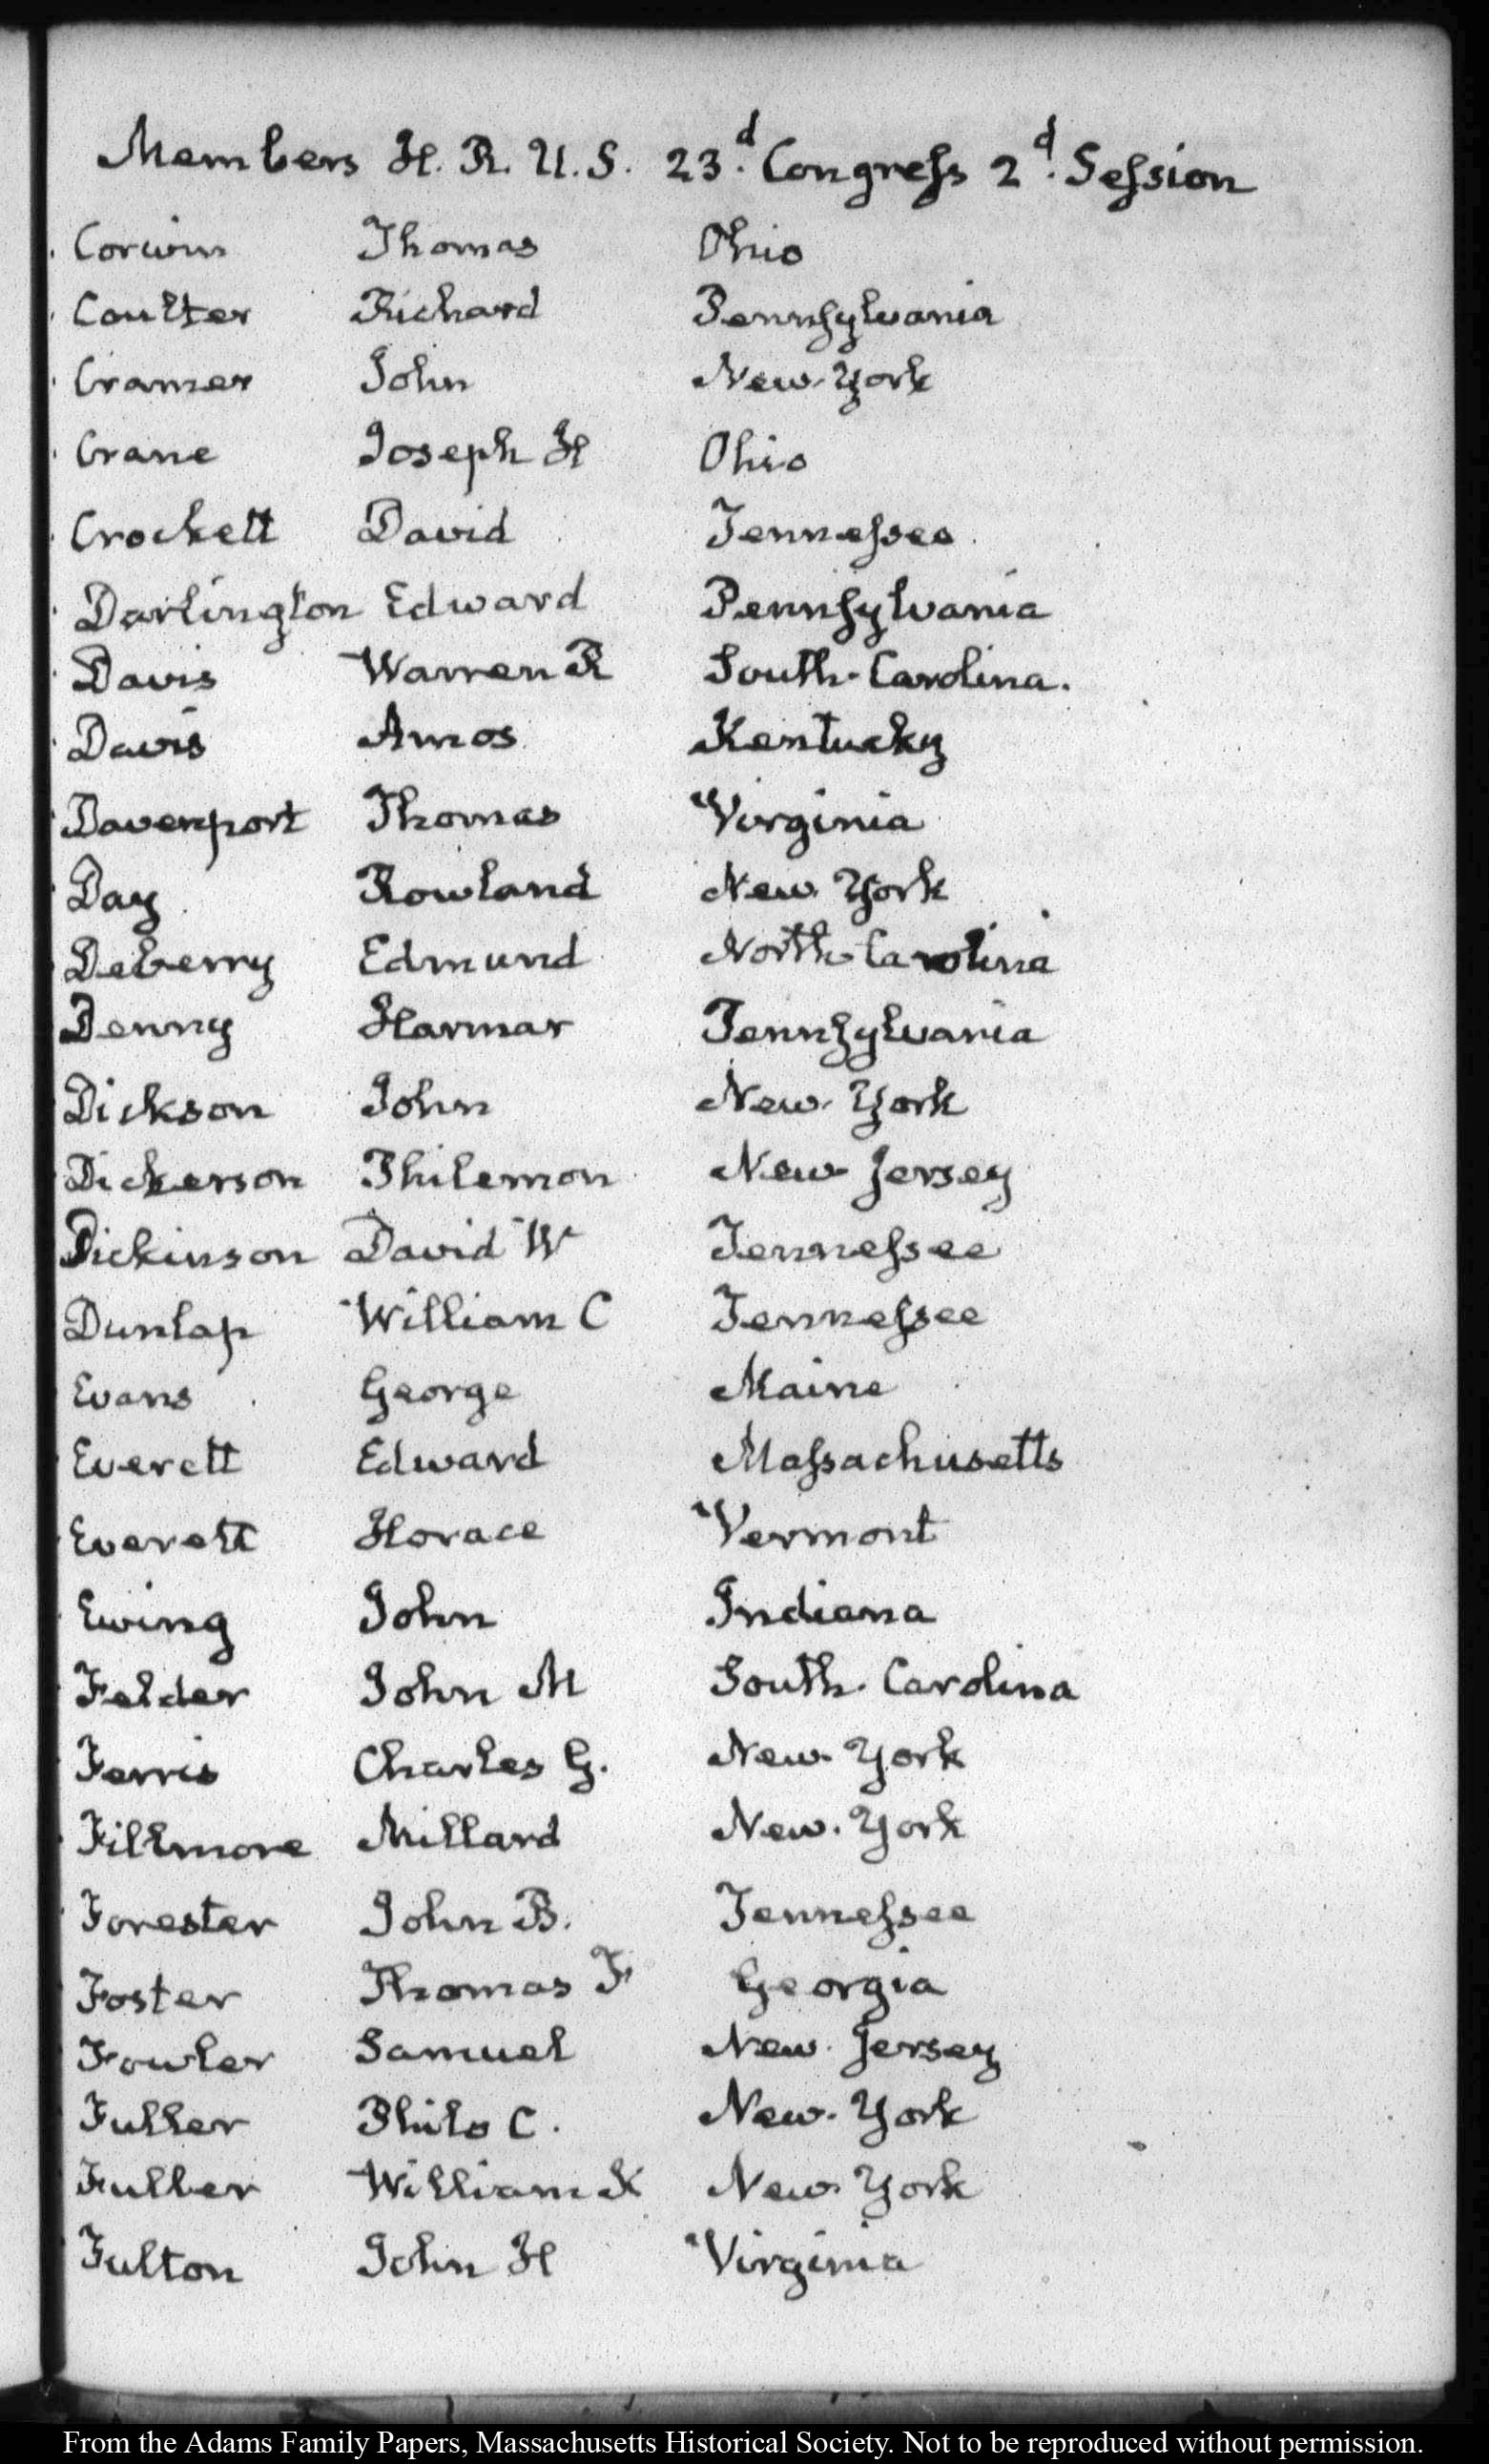 Members H. R. U. S. 23.d Congress 2d. Session
Corwin Thomas Ohio
Coulter Richard Pennsylvania
Cramer John New-York
Crane Joseph H Ohio
Crockett David Tennessee
Darlington Edward Pennsylvania
Davis Warren R South-Carolina.
Davis Amos Kentucky
Davenport Thomas Virginia
Day Rowland New York
Deberry Edmund North-Carolina
Denny Harmar Pennsylvania
Dickson John New-York
Dickerson Philemon New Jersey
Dickinson David W Tennessee
Dunlap William C Tennessee
Evans George Maine
Everett Edward Massachusetts
Everett Horace Vermont
Ewing John Indiana
Felder John M South-Carolina
Ferris Charles G. New-York
Fillmore Millard New-York
Forester John B. Tennessee
Foster Thomas F Georgia
Fowler Samuel New Jersey
Fuller Philo C. New-York
Fuller William K New York
Fulton John H Virginia
From the Adams Family Papers, Massachusetts Historical Society. Not to be reproduced without permission.